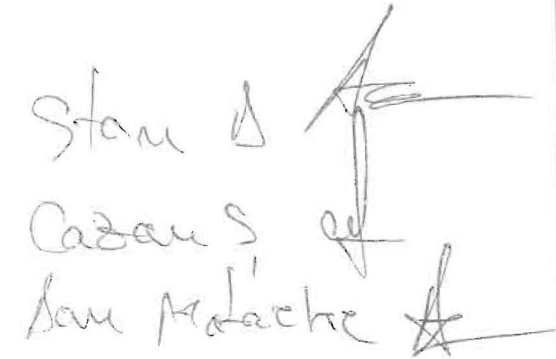 Stan D
Cazan S
Dan Malache